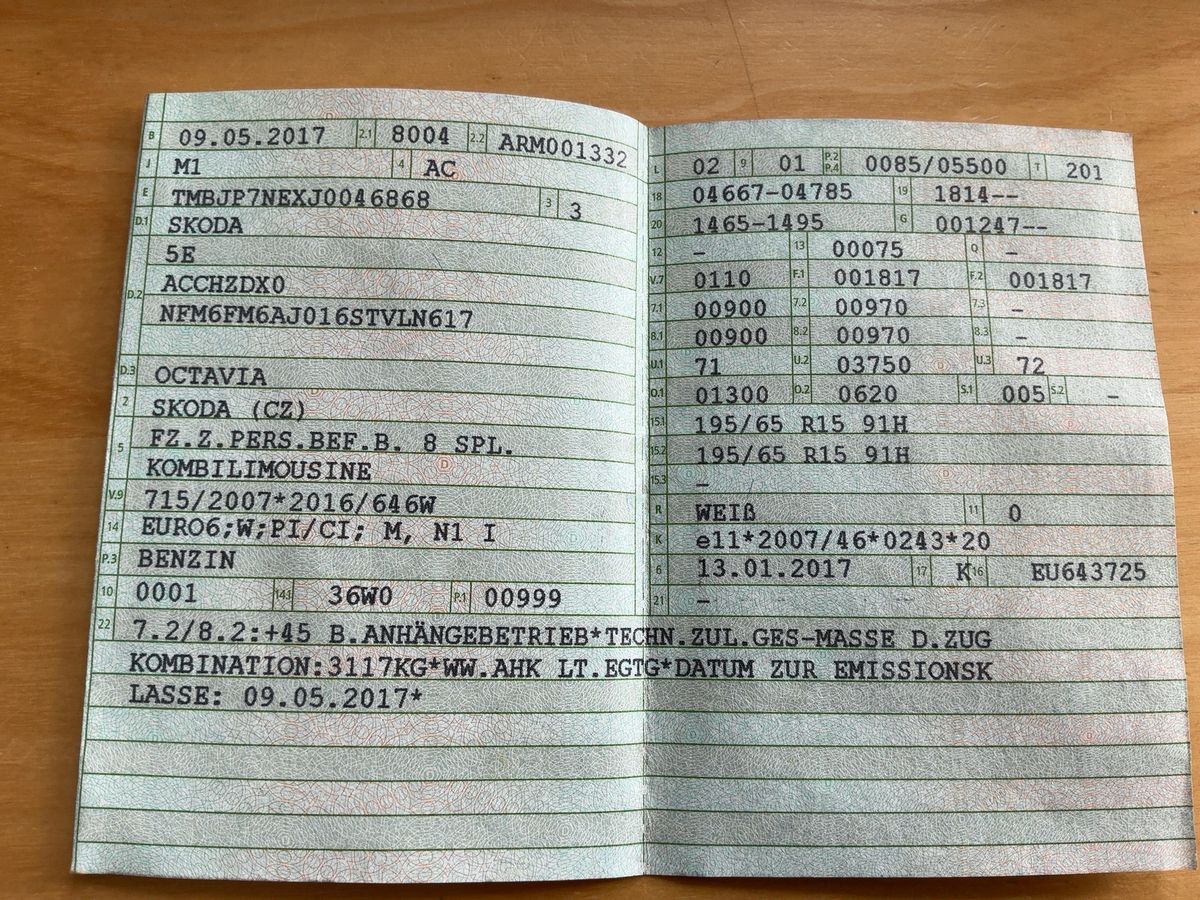 B 09.05.2017 2.1 8004 2.2 ARM001332
J M1 4 AC
E TMBJP7NEXJ0046868 3 3
D.1 SKODA
5E
D.2 ACCHZDX0
NFM6FM6AJ016STVLN617
D.3 OCTAVIA
2 SKODA (CZ)
5 FZ.Z.PERS.BEF.B. 8 SPL.
KOMBILIMOUSINE
V.9 715/2007*2016/646W
14 EURO6;W;PI/CI; M, N1 I
P.3 BENZIN
10 0001 14.1 36W0 P.1 00999
L 02 9 01 P.2 P.4 0085/05500 T 201
18 04667-04785 19 1814--
20 1465-1495 G 001247--
12 - 13 00075 Q -
V.7 0110 F.1 001817 F.2 001817
7.1 00900 7.2 00970 7.3 -
8.1 00900 8.2 00970 8.3 -
U.1 71 U.2 03750 U.3 72
O.1 01300 O.2 0620 S.1 005 S.2 -
15.1 195/65 R15 91H
15.2 195/65 R15 91H
15.3 -
R WEIß 11 0
K e11*2007/46*0243*20
6 13.01.2017 17 K 16 EU643725
21 -
22 7.2/8.2:+45 B.ANHÄNGEBETRIEB*TECHN.ZUL.GES-MASSE D.ZUG
KOMBINATION:3117KG*WW.AHK LT.EGTG*DATUM ZUR EMISSIONSK
LASSE: 09.05.2017*